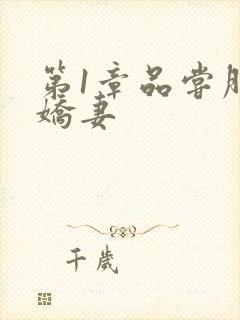 第1章品尝朋
嬌妻
千歲